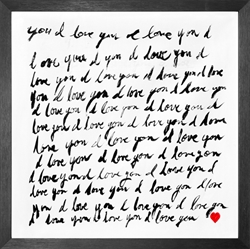 you I love you I love you I
love you I you I love you I
love you I love you I love you I love
you I love you I love you I love
you I love you I love you I love
you I love you I love you I love
love you I love you I love you
I love you I love you I love you
I love you I love you I love you I
love you I love you I love you I love
you I love you I love you I love
you I love you I love you I love you
I love you I love you I love you